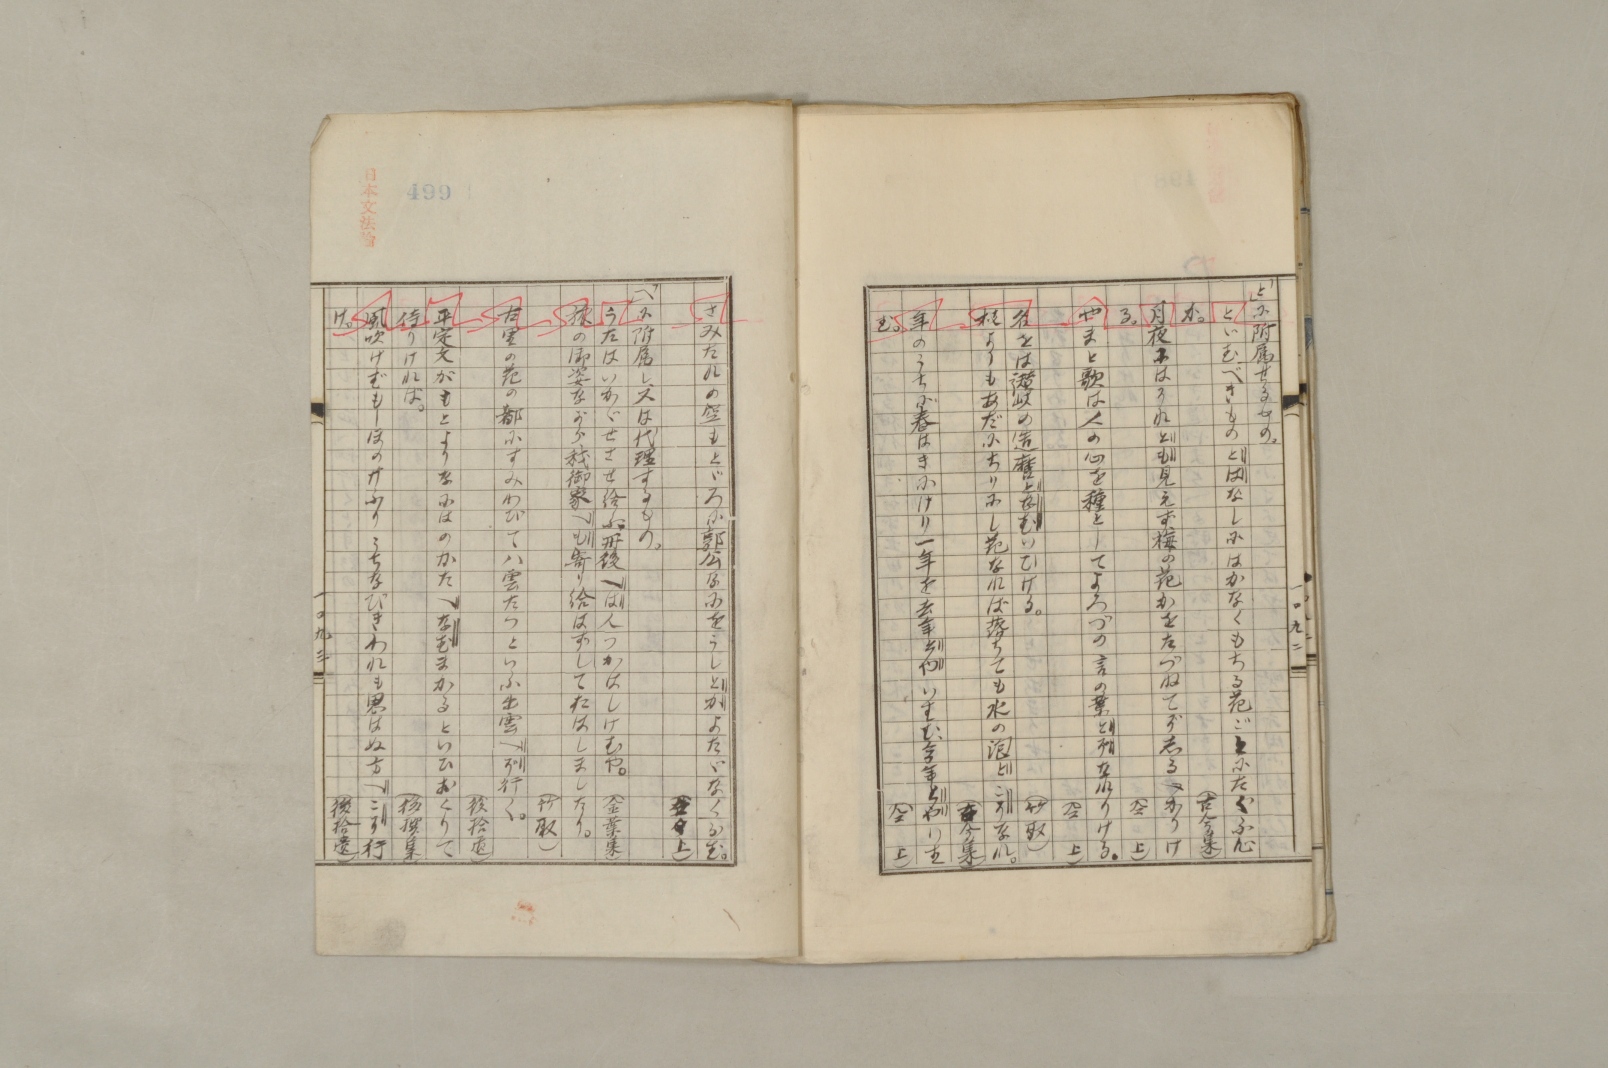 「と」に附属せるもの。
といむべきもの とばなしにはかなくもちる花ごとにたぐふ心
か。（古今集）
月夜にはそれとも見えず梅の花かをたづねてぞしるべかりけ
る。（仝 上）
やまと歌は人の心を種としてよろづの言の葉とぞなれりける。
（仝 上）
名をは讃岐の造麿となむいひける。
（竹取）
桜よりもあだにちりにし花なれば落ちても水の泡とこそなれ。
（古今集）
年のうちに春はきにけり一年を去年とやいはむ今年とやいは
む。（仝 上）
一〇九二
日本文法論
499
さみだれの空もとどろに郭公なにをうしとかよただなくらむ。
（仝 上）
「へ」に附属し又は代理するもの。
うたはいかゞせさせ給ふ丹後へは人つかはしけむや。（金葉集）
様の御姿ながら我御家へも寄り給はずしておはしましたり。
（竹取）
古里の花の都にすみわびて八雲たつといふ出雲へぞ行く。
（後拾遺）
平定文がもとよりなにはのかたへなむまかるといひおくりて
侍りければ。（後撰集）
風吹けばもしほのけぶりうちなびきわれも思はぬ方へこそ行
け。（後拾遺）
一〇九三